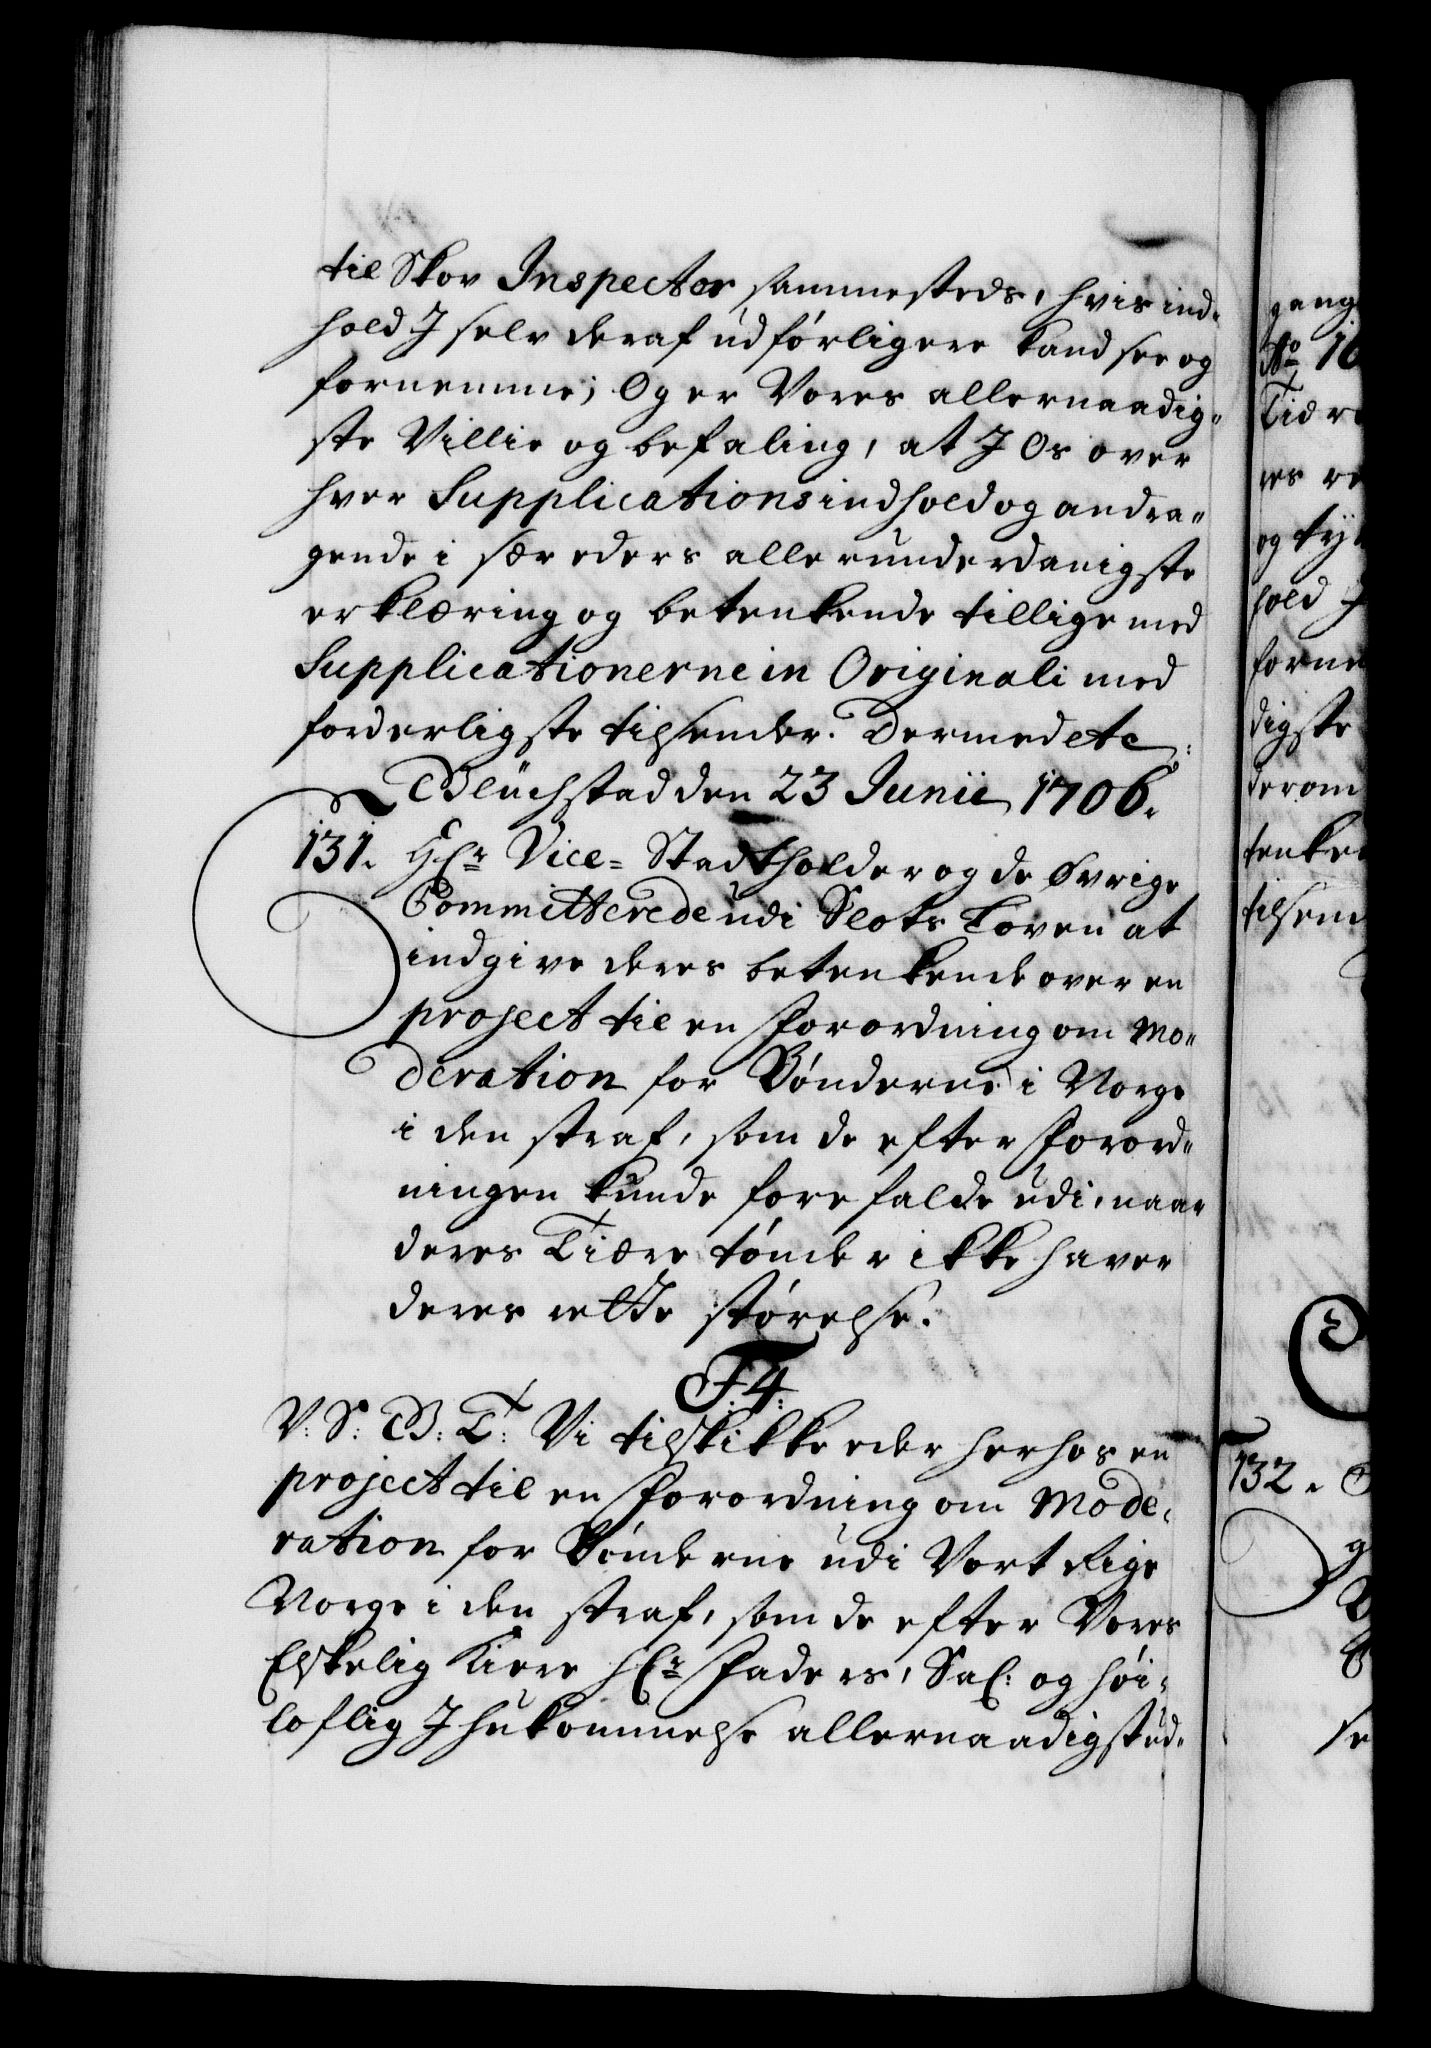 til Skov Inspector sammesteds, hvis ind-
hold I selv deraf udførligere kand see og
fornemme; Og er Vores allernaadig-
ste Villie og befaling, at I Os over
hver Supplications indhold og andra-
gende i sær eders allerunderdanigste
erklæring og betenkende tillige med
Supplicationerne in Originali med
forderligste tilsender. Dermed etc:
Glückstad den 23 Junii 1706.
131. H Hr: Vice-Stadtholder og de øvrige
Committerede udi Slots Loven at
indgive deres betenkende over en
project til en Forordning om Mo-
deration for Bønderne i Norge
i den straf, som de efter Forord-
ningen kunde forefalde udi, naar
deres Tiære tønder ikke haver
deres rette størelse.
F. 4.
V: S: G: T: Vi tilskikker eder herhos en
project til en Forordning om Mode-
ration for Bønderne udi Vort Rige
Norge i den straf, som de efter Vores
Elskelig Kiere Hr: Faders, Sal: og høi-
loflig Ihukommelse allernaadigst ud-
gang
No 16
Tiær
res
og
hold I
forne
digste
derom
tenke
tilsend
132.
se